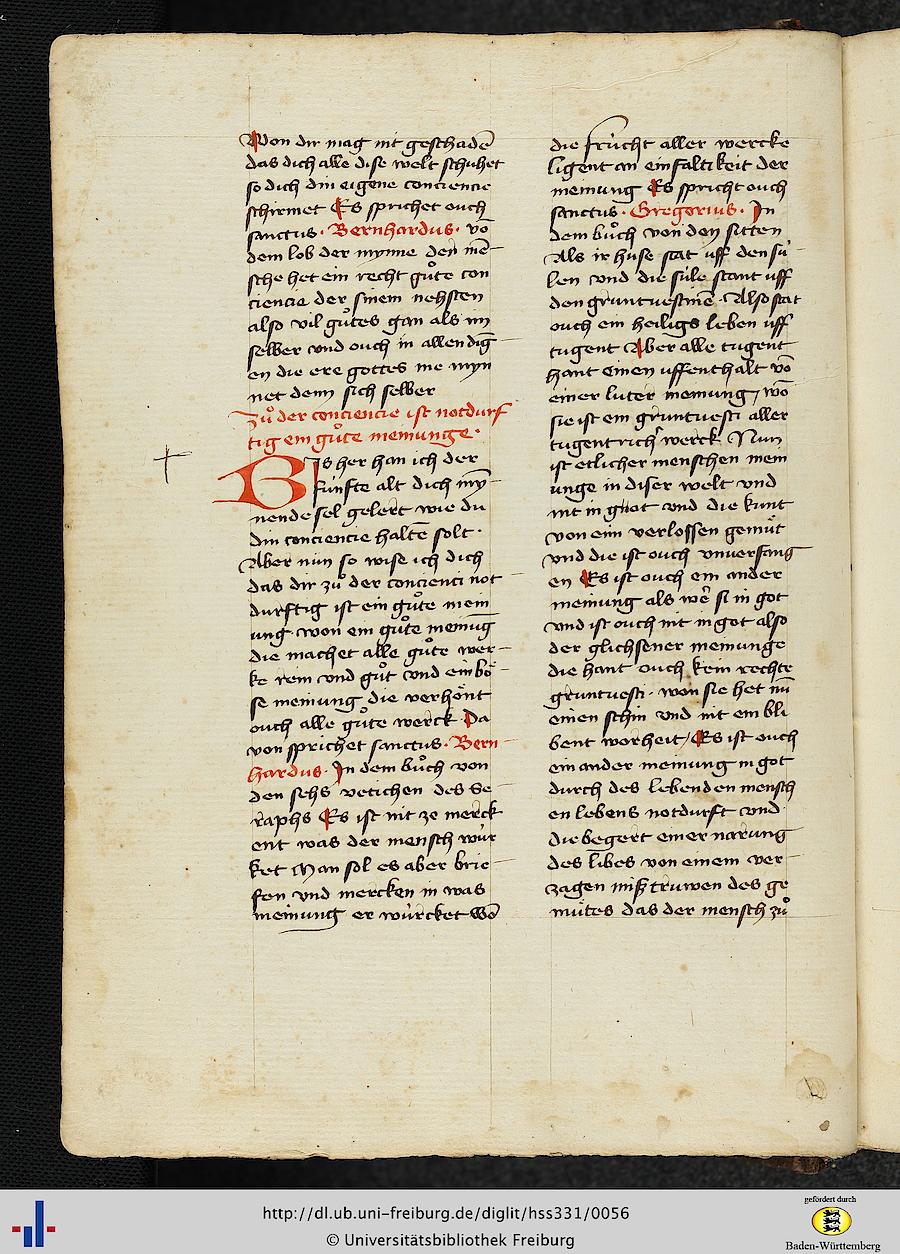 Won dir mag nit geschadē
das dich alle dise welt schuhet
so dich din eigene conciencie
schirmet Es sprichet ouch
sanctus · Bernhardus · vō
dem lob der mynne den mē
sche het ein recht gůte con
ciencie der sinem nehsten
also vil gůtes gan als im
selber vnd ouch in allen dīg
en die ere gottes me myn
net denn sich selber
Zů der conciencie ist notdurf
tig ein gůte meinunge ·
BJs her han ich der
fúnfte alt dich my̅
nende sel gelert wie du
din conciencie haltē solt ·
Aber nün so wise ich dich
das dir zů der concienci not
durftig ist ein gůte mein
ung won ein gůte meinūg
die machet alle gůte wer
ke rein vnd gůt vnd ein bö
se meinung die verhönt
ouch alle gůte werck Da
von sprichet sanctus · Bern
hardus · Jn dem bůch von
den sehs vetichen des Se
raphs Es ist nit ze merck
ent was der mensch wúr
ket Man sol es aber brie
fen vnd mercken in was
meinung er wúrcket Wō
die frúcht aller wercke
ligent an einfaltikeit der
meinung Es spricht ouch
sanctus · Gregorius · Jn
dem bůch von den sitten
Als ir huse stat uff den sú
len vnd die súle stant uff
den gruntuestinē · Also stat
ouch ein heiligs leben uff
tugent Aber alle tugent
hant einen uffenthalt vō
einer luter meinung / wō
sie ist ein gruntuesti aller
tugentrich werck Nun
ist etlicher menschen mein
unge in diser welt vnd
nit in got vnd die kunt
von eim verlossen gemüt
vnd die ist ouch vnuerfang
en Es ist ouch ein ander
meinung als wer si in got
vnd ist ouch nit in got also
der glichsener meinunge
die hant ouch kein rechte
gruntuesti · won sie het nū
einen schin vnd nit ein bli
bent worheit / Es ist ouch
ein ander meinung in got
durch des lebenden mensch
en lebens notdurft vnd
die begert einer narung
des libes von einem ver
zagen miß truwen des ge
mütes das der mensch zů
http://dl.ub.uni-freiburg.de/diglit/hss331/0056
© Universitätsbibliothek Freiburg
gefördert durch
Baden-Württemberg